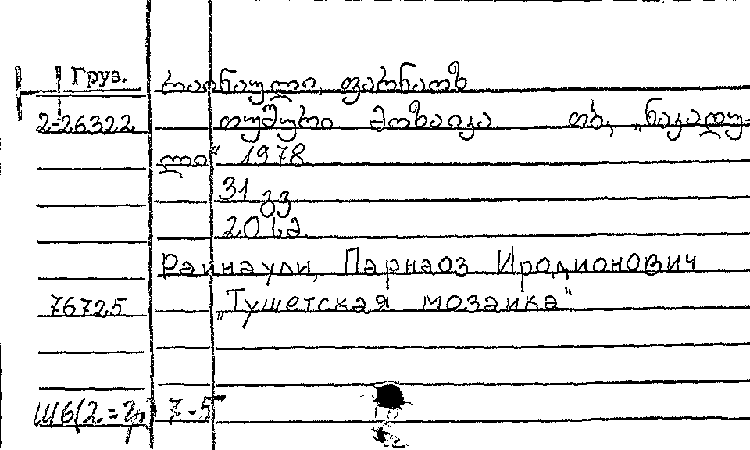 Груз.
რაინაული, ფარნაოზ
2-26322 თუშური მოზაიკა თბ, „ნაკადუ-
ლი“ 1978
31 გვ
20 სმ
Раинаули, Парнаоз Иродионович
76725 „Тушетская мозаика“
Ш6(2.=Гр) 7-5